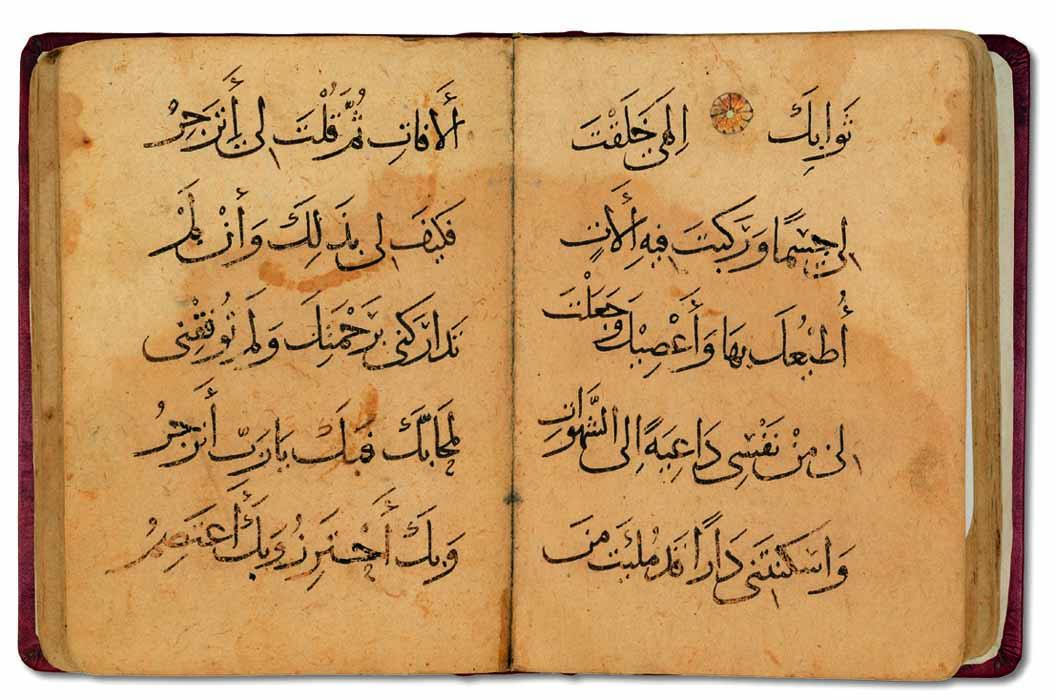 ثَوَابِكَ اِلٰهِى خَلَقْتَ
لِى جِسْمًا وَرَكَّبْتَ فِيهِ أَلَاتٍ
أُطِيعُكَ بِهَا وَأَعْصِيكَ وَجَعَلْتَ
لِى مِنْ نَفْسِى دَاعِيَةً اِلَى الشَّهَوَاتِ
وَاسْكَنْتَنِى دَارًا قَدْ مُلِئَتْ مِنَ
ألأفَاتِ ثُمَّ قُلْتَ لِى أَنزَجِرُ
فَكَيْفَ لِى بِذَلِكَ وَأنْ لَمْ
تَدَارَكْنِى بِرَحْمَتِكَ وَلَمْ تُوَفِّقْنِى
لِمَحَابِّكَ فَبِكَ يَا رَبِّ أَنزَجِرُ
وَبِكَ أَحْتَرِزُ وَبِكَ أَعْتَصِمُ